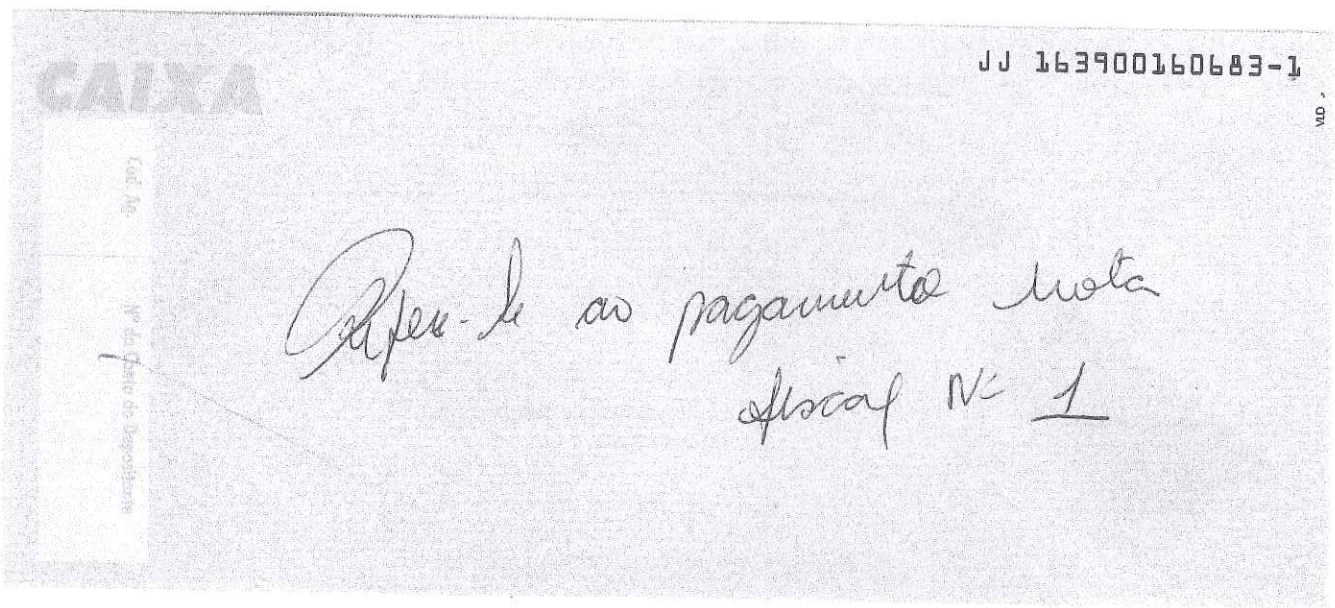 CAIXA
JJ 163900160683-1
VLD.
Cod. Ag.
Nº da Conta do Depositante
Refere-se ao pagamento nota
fiscal Nº 1